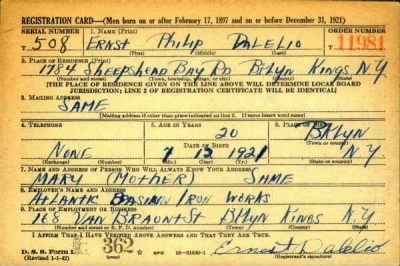 REGISTRATION CARD—(Men born on or after February 17, 1897 and on or before December 31, 1921)
SERIAL NUMBER 1. NAME (Print) ORDER NUMBER
T 508 ERNST PHILIP DALELIO 11981
(First) (Middle) (Last)
2. PLACE OF RESIDENCE (Print)
1784 SHEEPSHEAD BAY RD BKLYN KINGS N.Y.
(Number and street) (Town, township, village, or city) (County) (State)
[THE PLACE OF RESIDENCE GIVEN ON THE LINE ABOVE WILL DETERMINE LOCAL BOARD
JURISDICTION; LINE 2 OF REGISTRATION CERTIFICATE WILL BE IDENTICAL]
3. MAILING ADDRESS
SAME
[Mailing address if other than place indicated on line 2. If same insert word same]
4. TELEPHONE 5. AGE IN YEARS 6. PLACE OF BIRTH
20 BKLYN
DATE OF BIRTH (Town or county)
NONE 7 13 1921 N.Y.
(Exchange) (Number) (Mo.) (Day) (Yr.) (State or country)
7. NAME AND ADDRESS OF PERSON WHO WILL ALWAYS KNOW YOUR ADDRESS
MARY (MOTHER) SAME
8. EMPLOYER'S NAME AND ADDRESS
ATLANTIC BASIN IRON WORKS
9. PLACE OF EMPLOYMENT OR BUSINESS
168 VAN BRAUNT ST BKLYN KINGS N.Y.
(Number and street or R. F. D. number) (Town) (County) (State)
I AFFIRM THAT I HAVE VERIFIED ABOVE ANSWERS AND THAT THEY ARE TRUE.
D. S. S. Form 1 362 Ernest Dalelio
(Revised 1-1-42) (Registrant's signature)